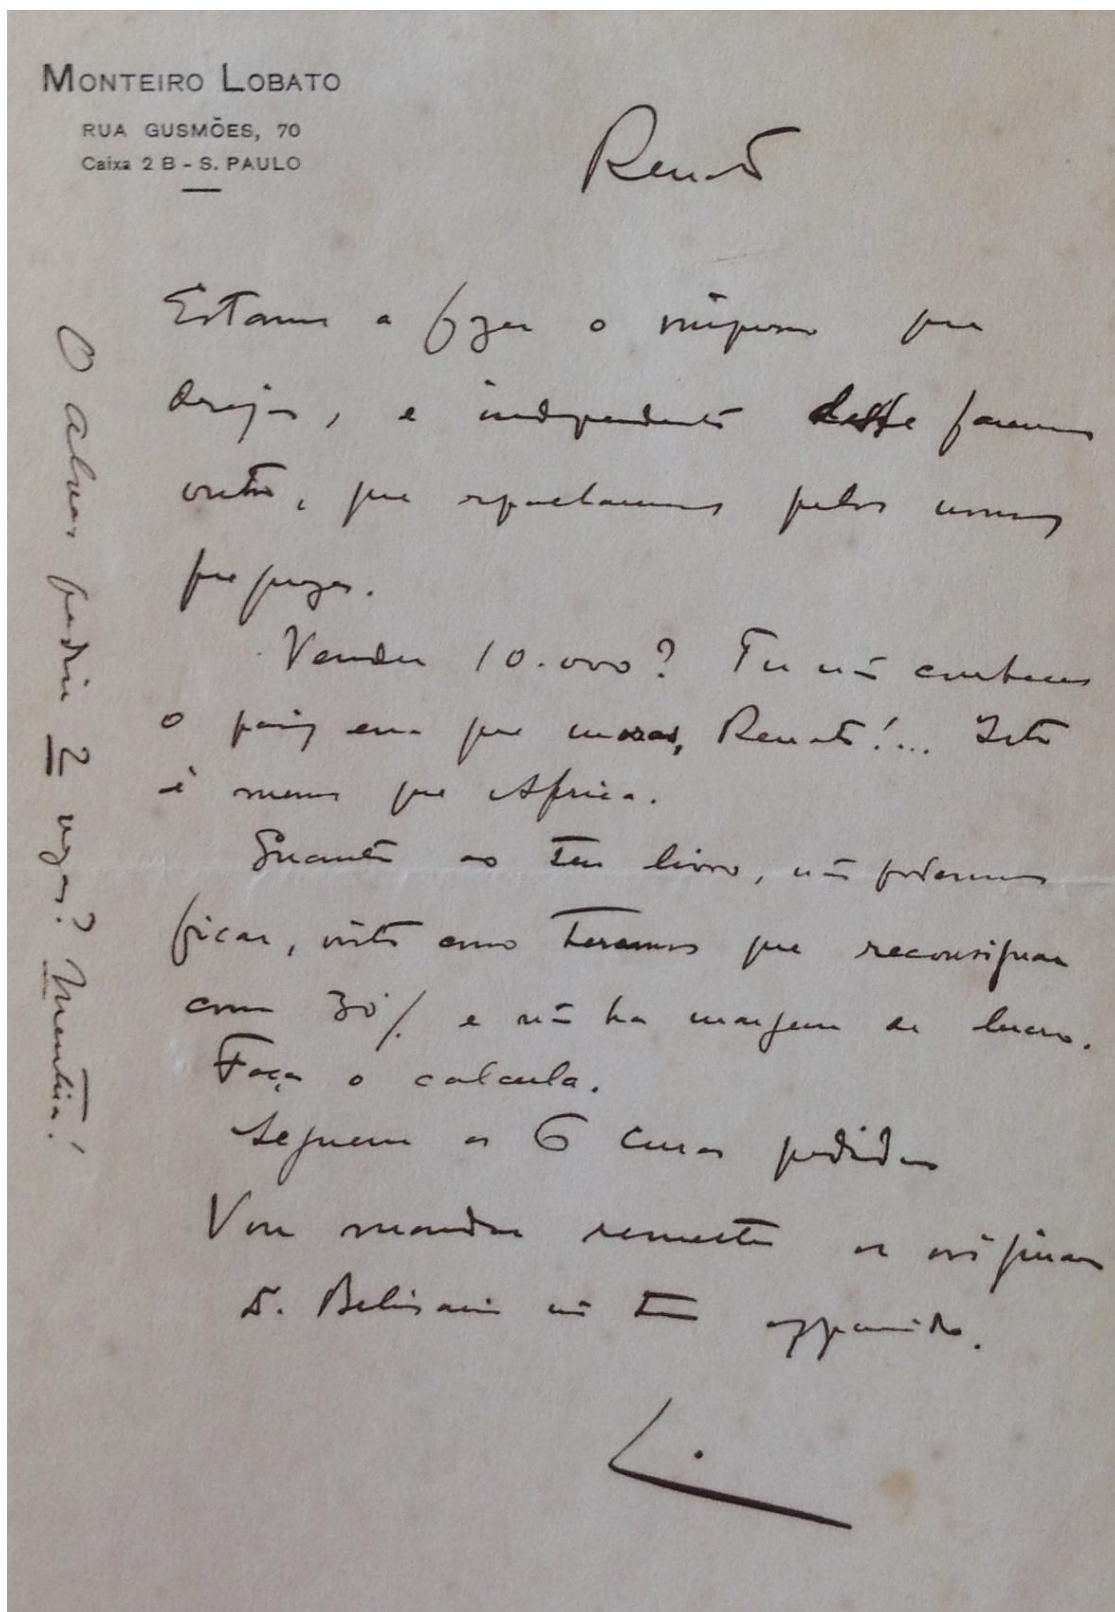 MONTEIRO LOBATO
RUA GUSMÕES, 70
Caixa 2 B - S. PAULO
Renato
Estamos a fazer o impresso que
desejas, e independente desse faremos
outro, que espalharemos pelos nossos
freguezes.
Vender 10.000? Tu não conheces
o paiz em que moras, Renato!... Isto
é menos que Africa.
Quanto ao teu livro, não podemos
ficar, visto como teramos que reconsignar
com 30% e não ha margem de lucro.
Faça o calculo.
Seguem os 6 pedidos
Vou mandar remetter os originaes
D. Belisario não tem apparecido.
L.
O Alves pediu 2 vezes? Mentira!